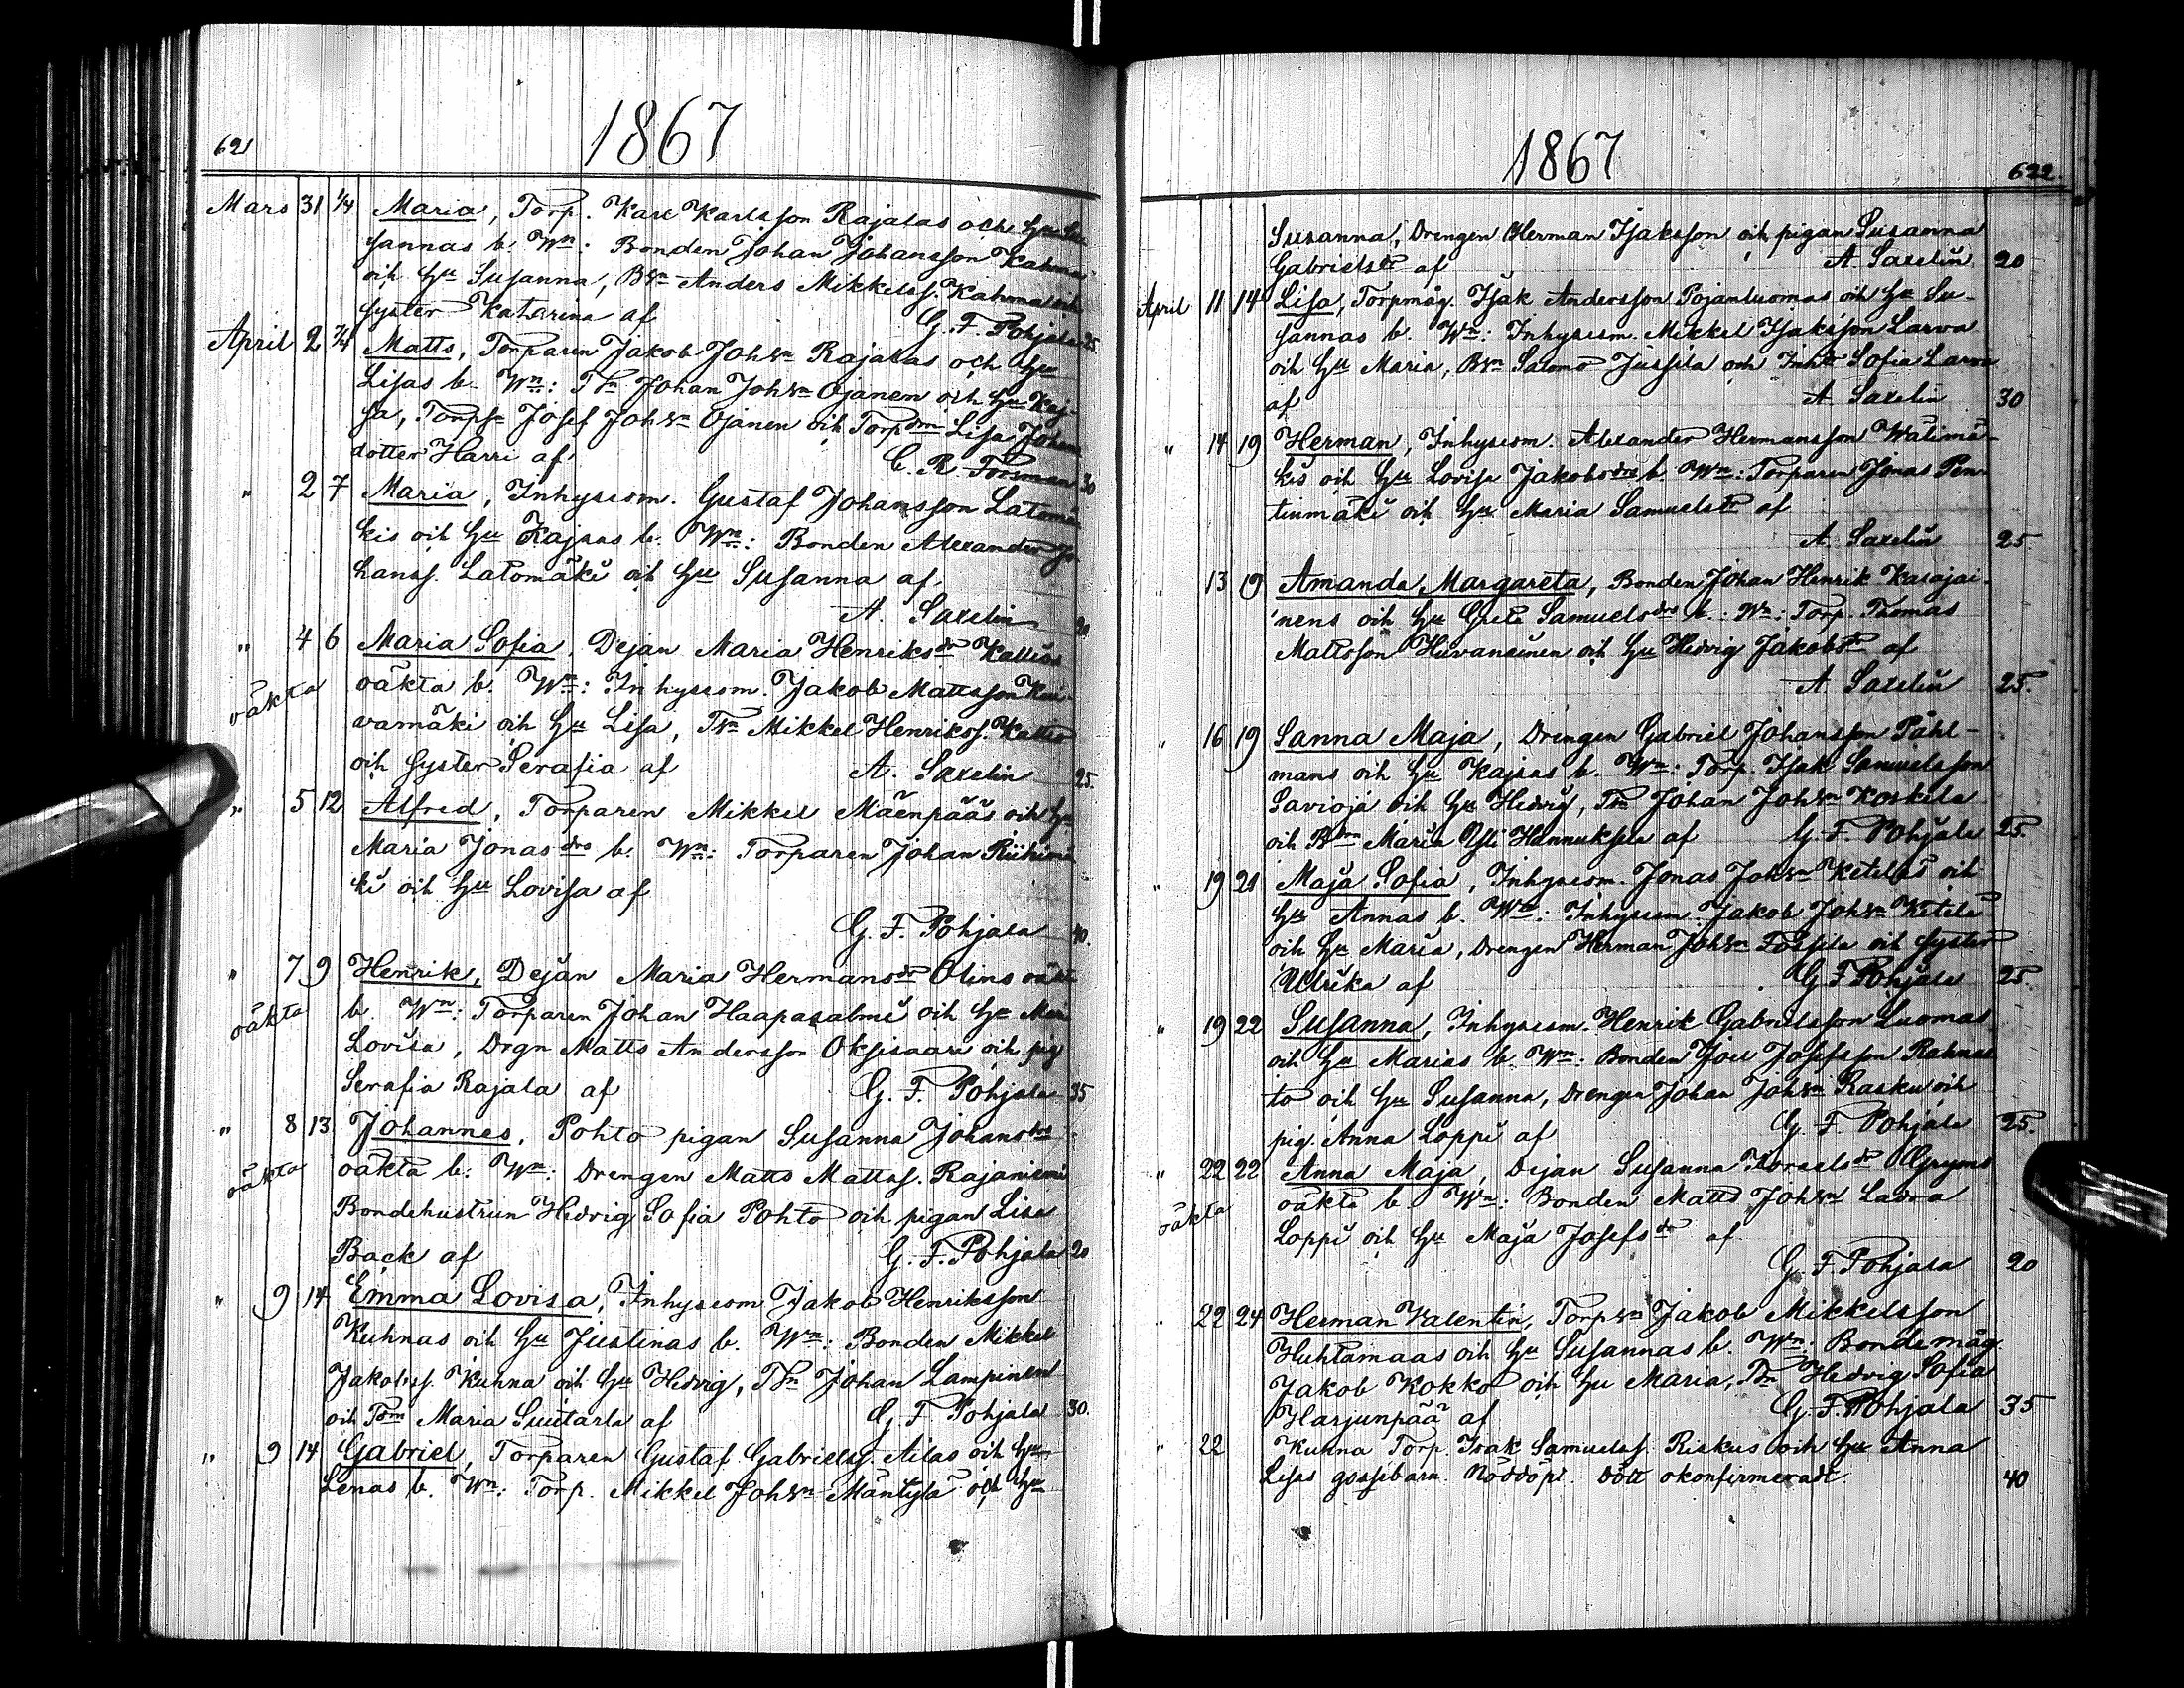 1867
621
Mars 31 1/4 Maria, Torp. Karl Karlsson Rajalas och Hu Su-
sannas b. Wn: Bonden Johan Johansson Kahma
och Hu Susanna, Bsn Anders Mikkelss. Kahma och
syster Katarina af G. F. Pohjala 25.
April 2 7/4 Matts, Torparen Jakob Johsn Rajalas och Hu
Lisas b. Wn: Tn Johan Johsn Ojanen och Hu Kaj-
sa, Torpsn Josef Johsn Ojanen och Torpdrn Lisa Johans
dotter Harri af C. R. Forsman 30
" 2 7 Maria, Inhysesm. Gustaf Johansson Latomä
kis och Hu Kajsas b. Wn: Bonden Alexander Jo
hanss. Latomäki och Hu Susanna af
A. Saxelin 20
" 4 6 Maria Sofia, Dejan Maria Henriksdr Kallios
oäkta oäkta b. Wn: Inhysesm. Jakob Mattsson
vamäki och Hu Lisa, Tsn Mikkel Henrikss. Kallio
och syster Serafia af A. Saxelin 25.
" 5 12 Alfred, Torparen Mikkel Mäenpääs och Hu
Maria Jonasdrs b. Wn: Torparen Johan Riihimä
ki och Hu Lovisa af
G. F. Pohjala 40.
" 7 9 Henrik, Dejan Maria Hermansdr Olins oäkta
oäkta b. Wn: Torparen Johan Haapasalmi och Hu Maria
Lovisa, Drgn Matts Andersson Oksisaari och pig
Serafia Rajala af G. F. Pohjala 35
" 8 13 Johannes, Pohto pigan Susanna Johansdrs
oäkta oäkta b. Wn: Drengen Matts Mattss. Rajaniemi
Bondehustrun Hedvig Sofia Pohto och pigan Lisa
Back af G. F. Pohjala 20
" 9 14 Emma Lovisa, Inhysesm Jakob Henriksson
Kuhnas och Hu Justinas b. Wn: Bonden Mikkel
Jakobss. Kuhna och Hu Hedvig, Tsn Johan Lampinen
och Tdrn Maria Suutarla af G. F. Pohjala 30.
" 9 14 Gabriel, Torparen Gustaf Gabrielss. Ailas och Hu
Lenas b. Wn: Torp. Mikkel Johsn Mäntylä och Hu
1867
622.
Susanna, Drengen Herman Isaksson och pigan Susanna
Gabrielsdr af A. Saxelin 20
April 11 14 Lisa, Torpmåg. Isak Andersson Pojanluomas och Hu Su-
sannas b. Wn: Inhysesm. Mikkel Isaksson Larva
och Hu Maria, Bsn Salomo Jussila och Inhdr Sofia Larva
af A. Saxelin 30
" 14 19 Herman, Inhysesm. Alexander Hermansson Wälimä-
kis och Hu Lovisa Jakobsdrs b. Wn: Torparen Jonas Pen-
tinmäki och Hu Maria Samuelsdr af
A. Saxelin 25.
" 13 19 Amanda Margareta, Bonden Johan Henrik Kasajai-
nens och Hu Greta Samuelsdrs b. Wn: Torp. Thomas
Mattsson Huvaneinen och Hu Hedvig Jakobsdr af
A Saxelin 25.
" 16 19 Sanna Maja, Drengen Gabriel Johansson Påhl-
mans och Hu Kajsas b. Wn: Torp. Isak Samuelsson
Savioja och Hu Hedvig, Tsn Johan Johsn Koskela
och Bdrn Maria Yli Hannuksela af G. F. Pohjala 25.
" 19 21 Maja Sofia, Inhysesm. Jonas Johsn Ketelas och
Hu Annas b. Wn: Inhysesm. Jakob Johsn Ketela
och Hu Maria, Drengen Herman Johsn Fossila och syster
Ulrika af G F Pohjala 25.
" 19 22 Susanna, Inhysesm. Henrik Gabrielsson Luomas
och Hu Marias b. Wn: Bonden Joel Josefsson Rahnas
to och Hu Susanna, Drengen Johan Johsn Rasku och
pig. Anna Loppi af G. F. Pohjala 25.
" 22 22 Anna Maja, Dejan Susanna Israelsdr Gryms
oäkta oäkta b. Wn: Bonden Matts Johsn Ladva
Loppi och Hu Maja Josefsdr af
G. F. Pohjala 20
" 22 24 Herman Valentin, Torpsn Jakob Mikkelsson
Huhtamaas och Hu Susannas b. Wn: Bondemåg
Jakob Kokko och Hu Maria, Tdn Hedvig Sofia
Harjunpää af G. F. Pohjala 35
" 22 Kuhna Torp. Isak Samuelss. Riskus och Hu Anna
Lisas gossebarn. Nöddöpt. dött okonfirmeradt. 40